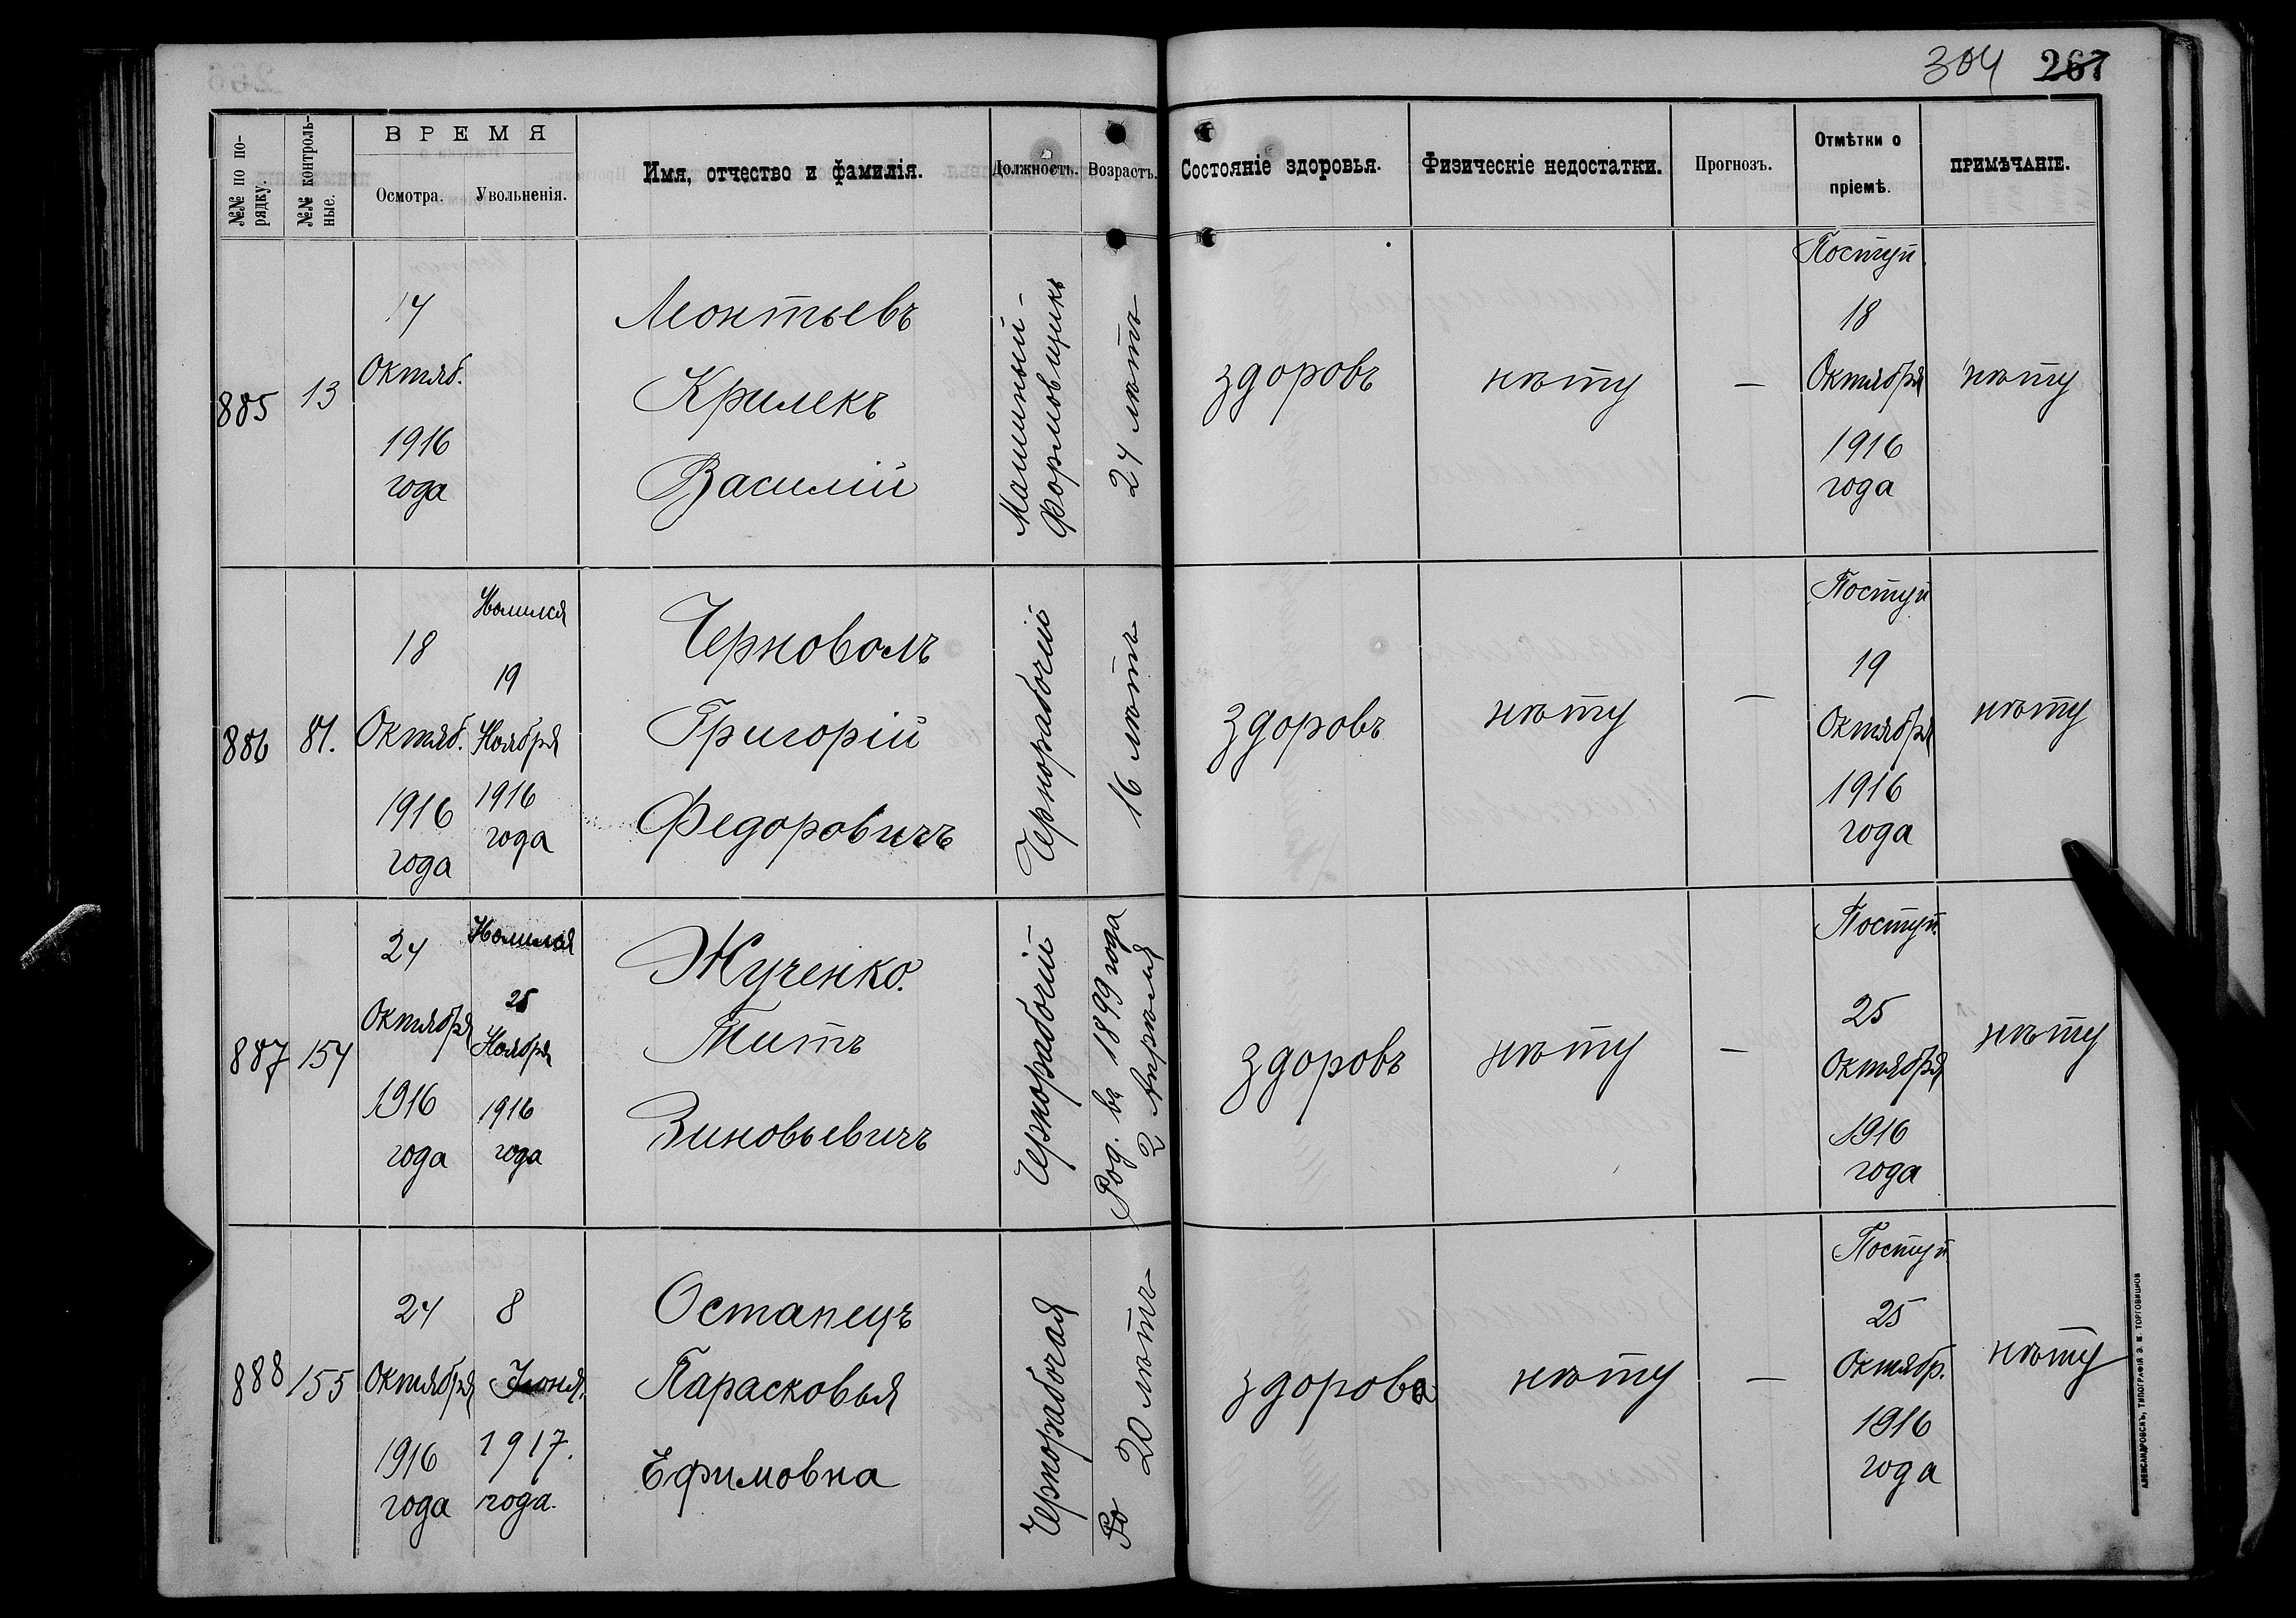 304 267
№№ по по-
рядку.
№№ контроль-
ные.
ВРЕМЯ
Осмотра.
Увольненія.
Имя, отчество и фамилія.
Должность.
Возрастъ.
Состояніе здоровья.
Физическіе недостатки.
Прогнозъ.
Отмѣтки о
пріемѣ.
ПРИМѢЧАНІЕ.
885
13
17
Октяб.
1916
года
Леонтьевъ
Крилекъ
Василій
Машинный-
Формовщикъ
24 лѣтъ
здоровъ
нѣту
—
Поступ.
18
Октября
1916
года
нѣту
886
81.
18
Октяб.
1916
года
19
Ноября
1916
года
Черноволъ
Григорій
Федоровичъ
Чернорабочій
16 лѣтъ
здоровъ
нѣту
—
Поступ
19
Октября
1916
года
нѣту
887
154
24
Октября
1916
года
25
Ноября
1916
года
Жученко.
Титъ
Зиновьевичъ
Чернорабочій
Род. въ 1899 года
2 Апрѣля
здоровъ
нѣту
—
Поступ.
25
Октября
1916
года
нѣту
888
155
24
Октября
1916
года
8
Іюня.
1917.
года.
Остапецъ
Парасковья
Ефимовна
Чернорабочая
Ро 20 лѣтъ
здорова
нѣту
—
Поступ.
25
Октябр.
1916
года
нѣту
АЛЕКСАНДРОВСКЪ, ТИПОГРАФІЯ Э. М. ТОРГОВИЦКОЙ